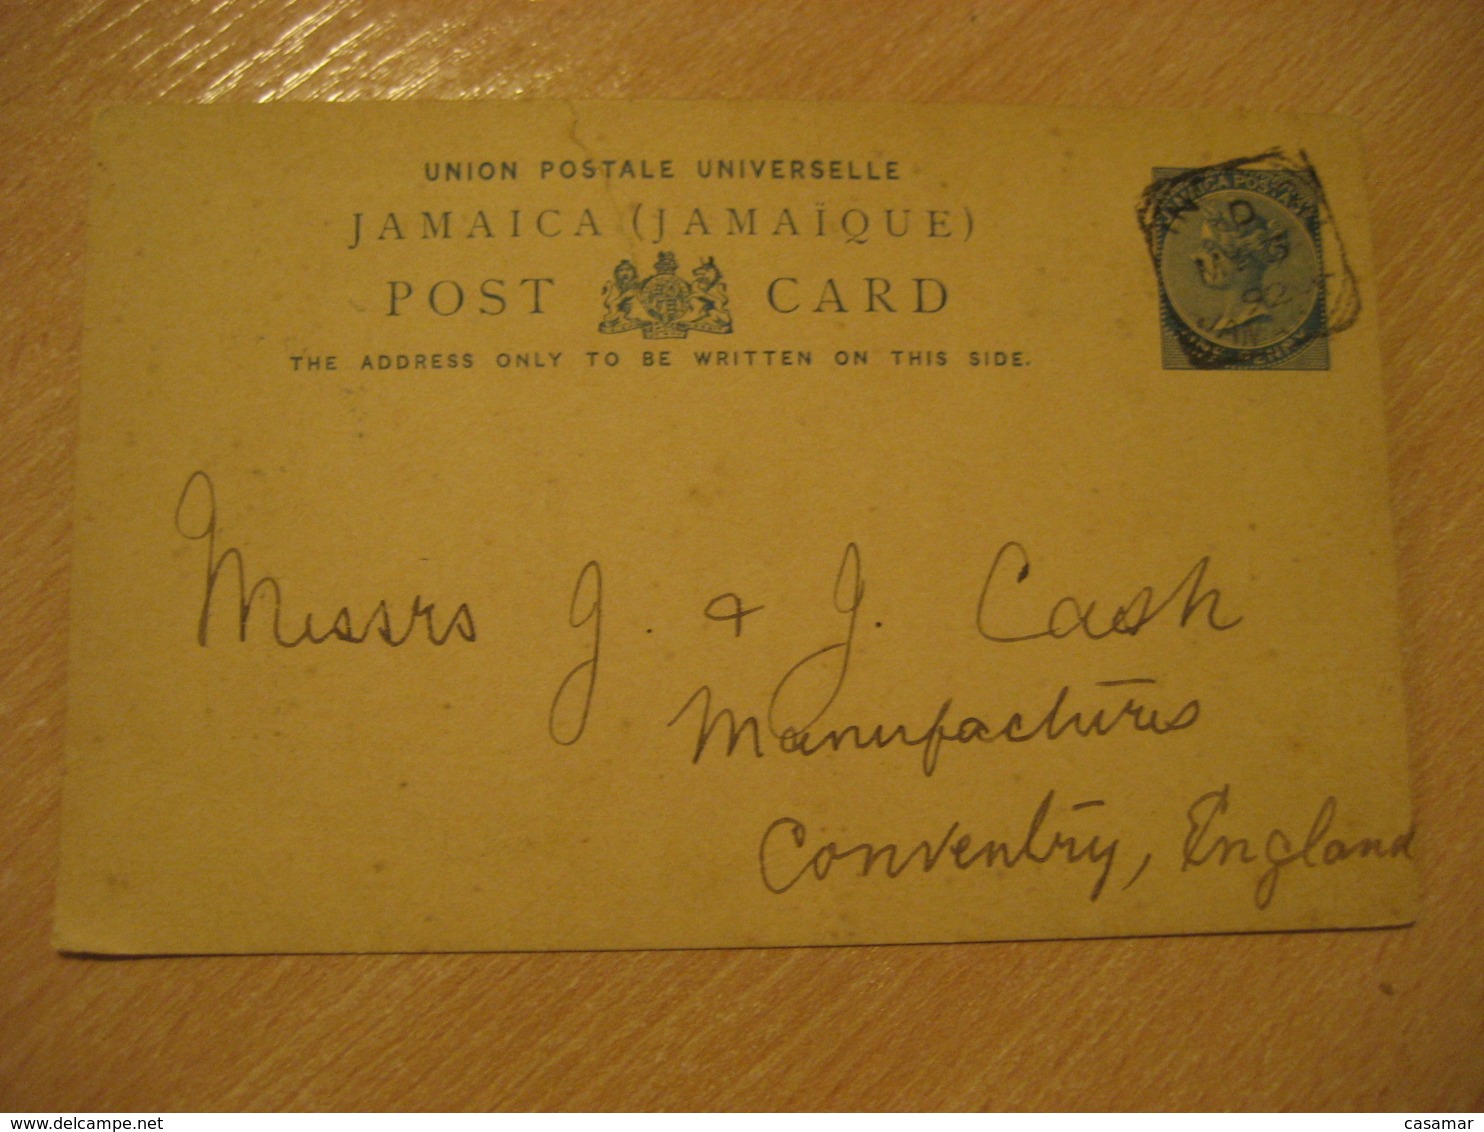 UNION POSTALE UNIVERSELLE
JAMAICA (JAMAÏQUE)
POST CARD
THE ADDRESS ONLY TO BE WRITTEN ON THIS SIDE.
JAMAICA POSTAGE
92
JAN
Messrs J. & J. Cash
Manufactures
Conventry, England
casamar